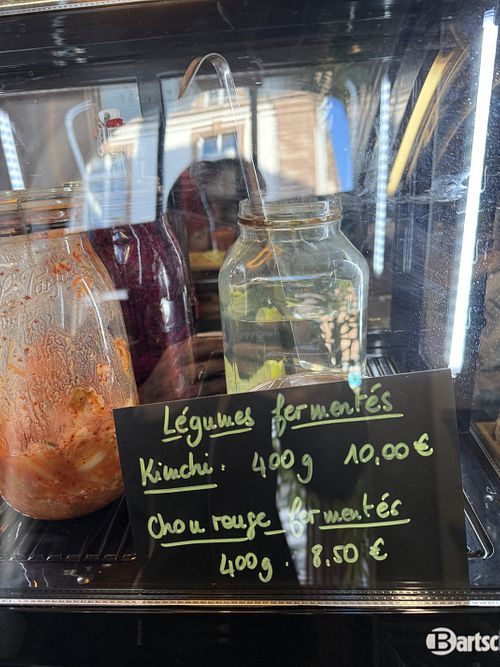 Légumes fermentés
Kimchi. 400g 10,00 €
Chou rouge fermentés
400g. 8.50 €
Bartsc